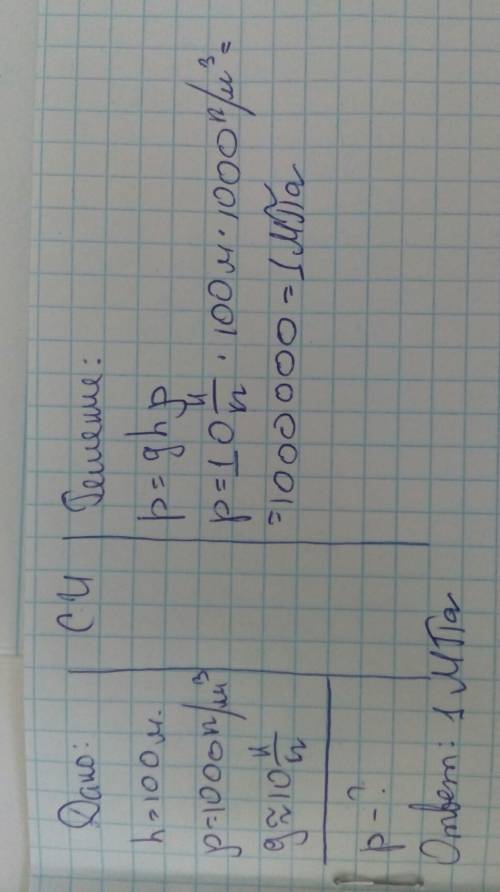 Дано:
h=100м.
ρ=1000кг/м³
g≈10 Н/кг
p-?
СИ
Решение:
p=ghρ
p=10 Н/кг · 100м · 1000кг/м³=
=1000000=1МПа
Ответ: 1МПа